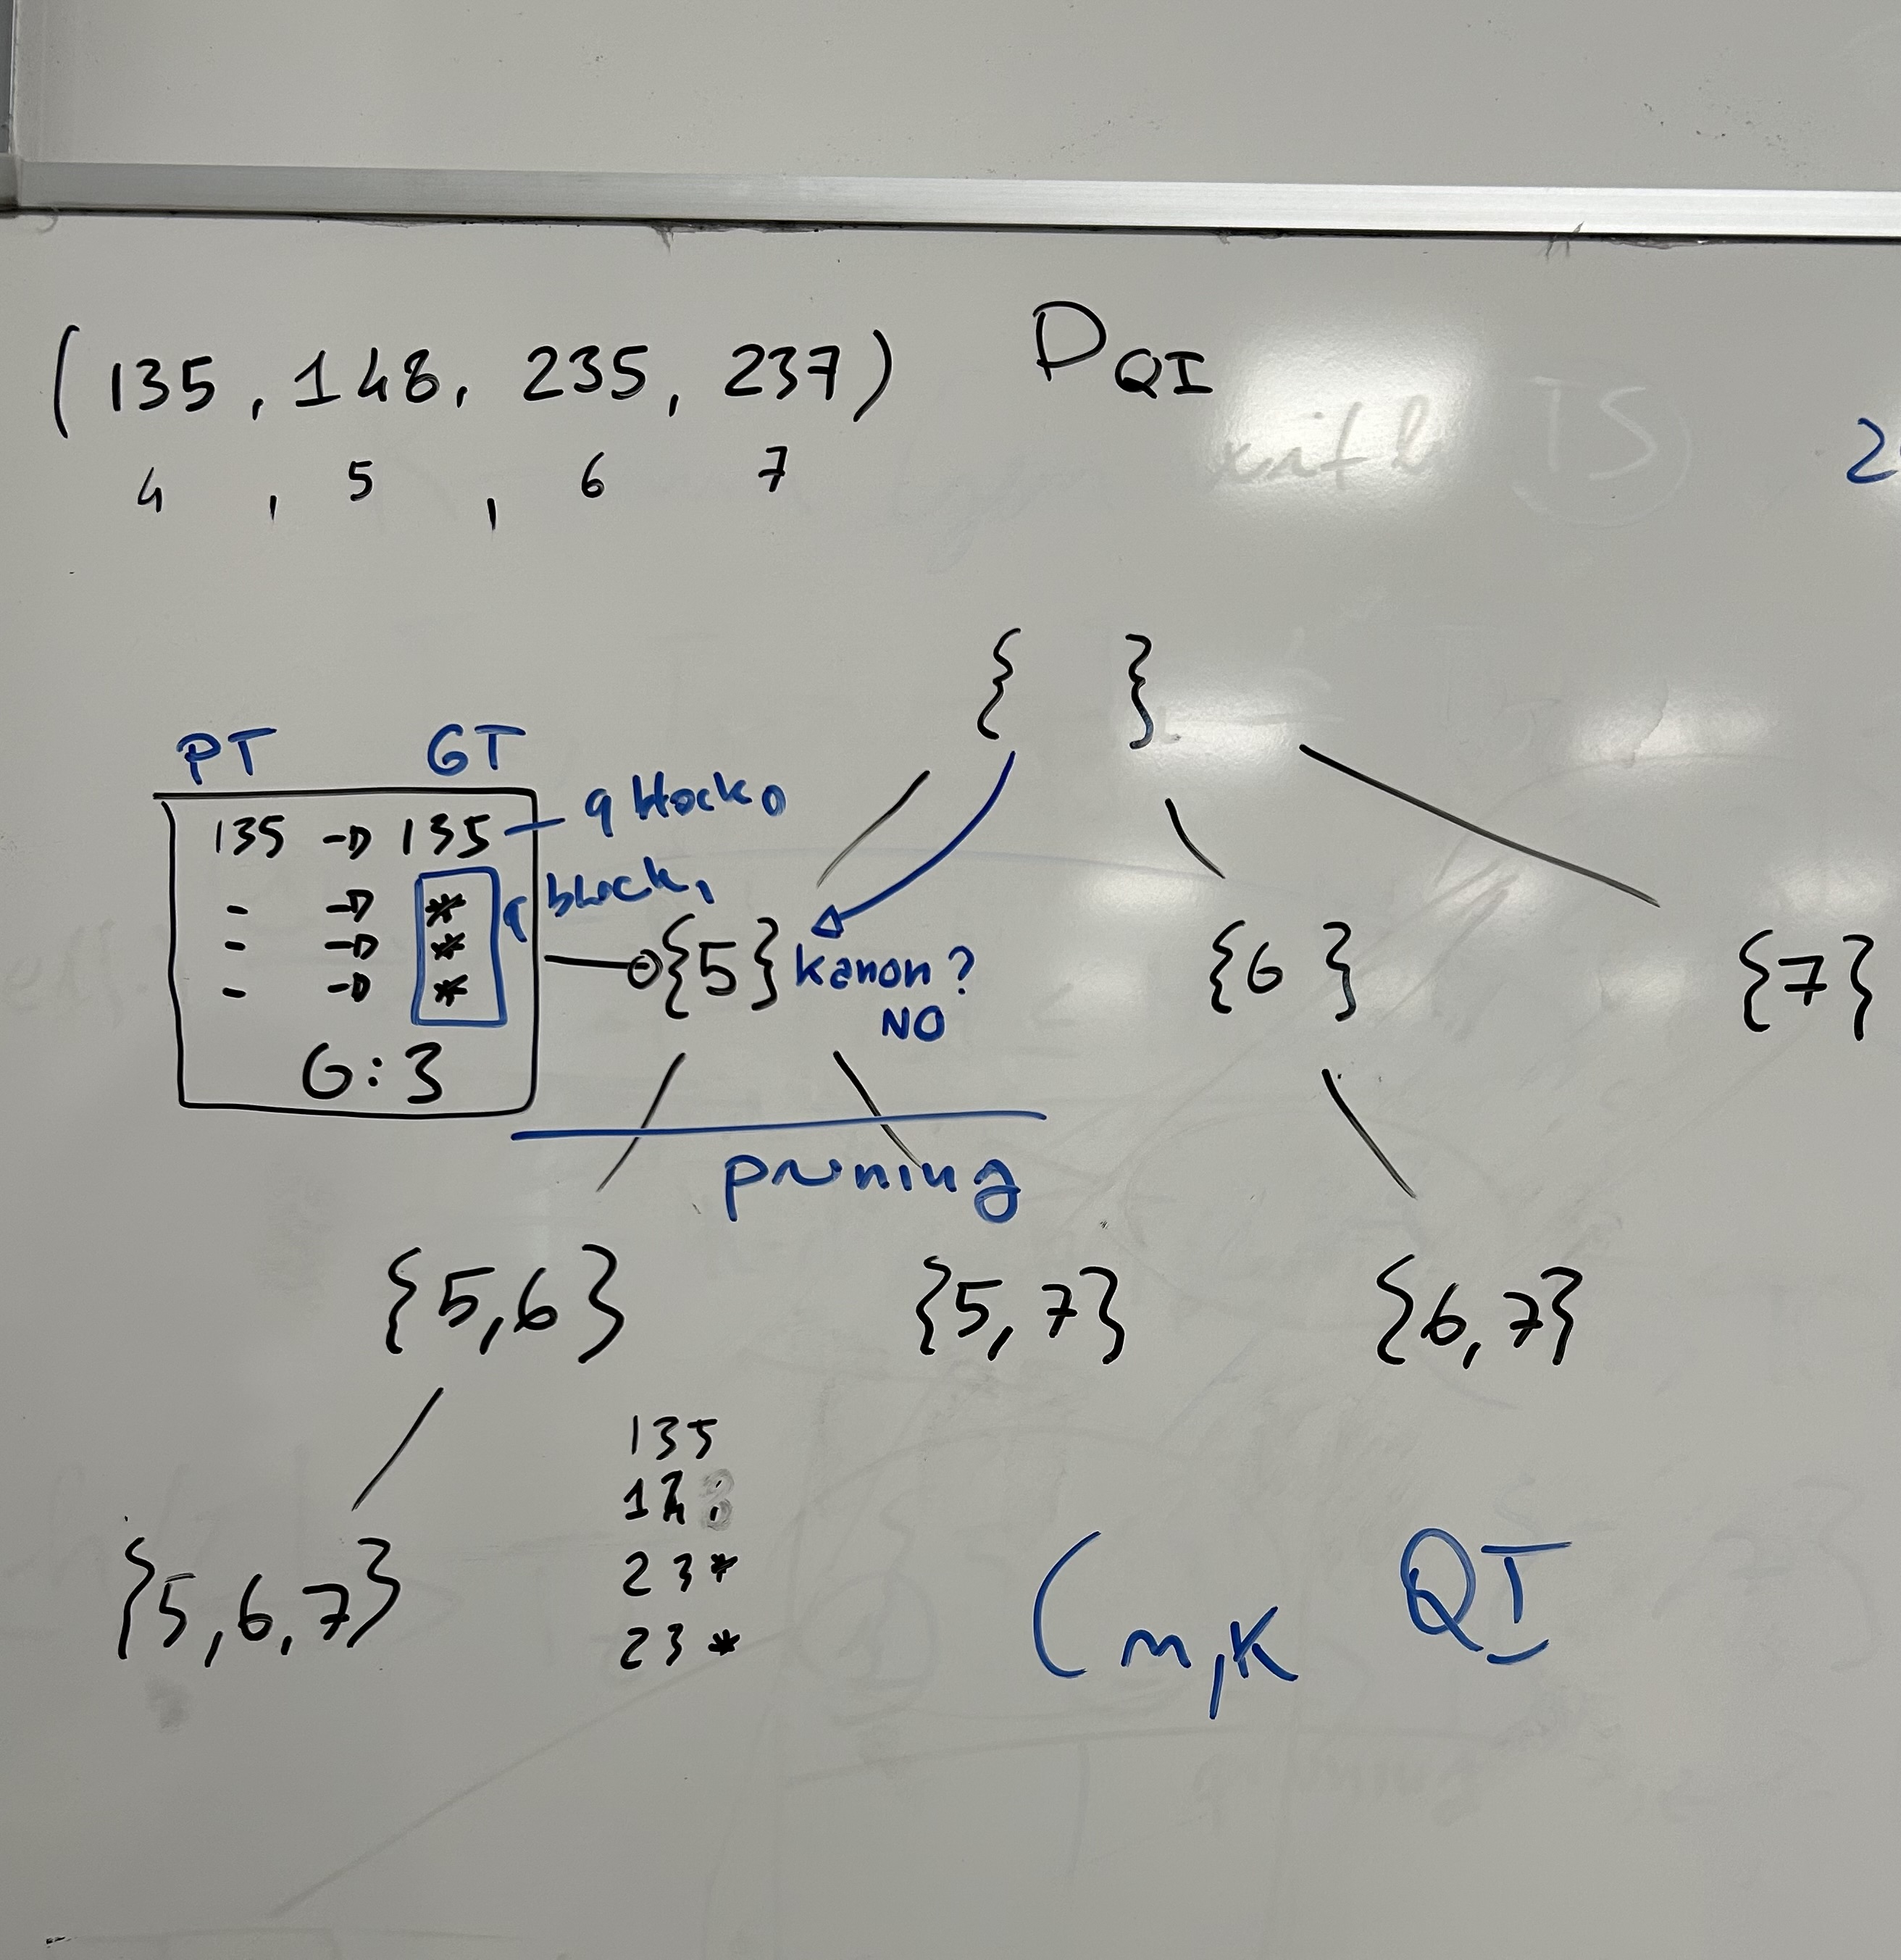 (135, 148, 235, 237) DQI
4, 5, 6 7
{ }
PT GT
135 → 135 q block 0
- → * q block 1
- → *
- → *
G: 3
{5} kanon?
NO
{6}
{7}
pruning
{5,6} {5,7} {6,7}
135
23*
23*
{5,6,7}
(m,K QI